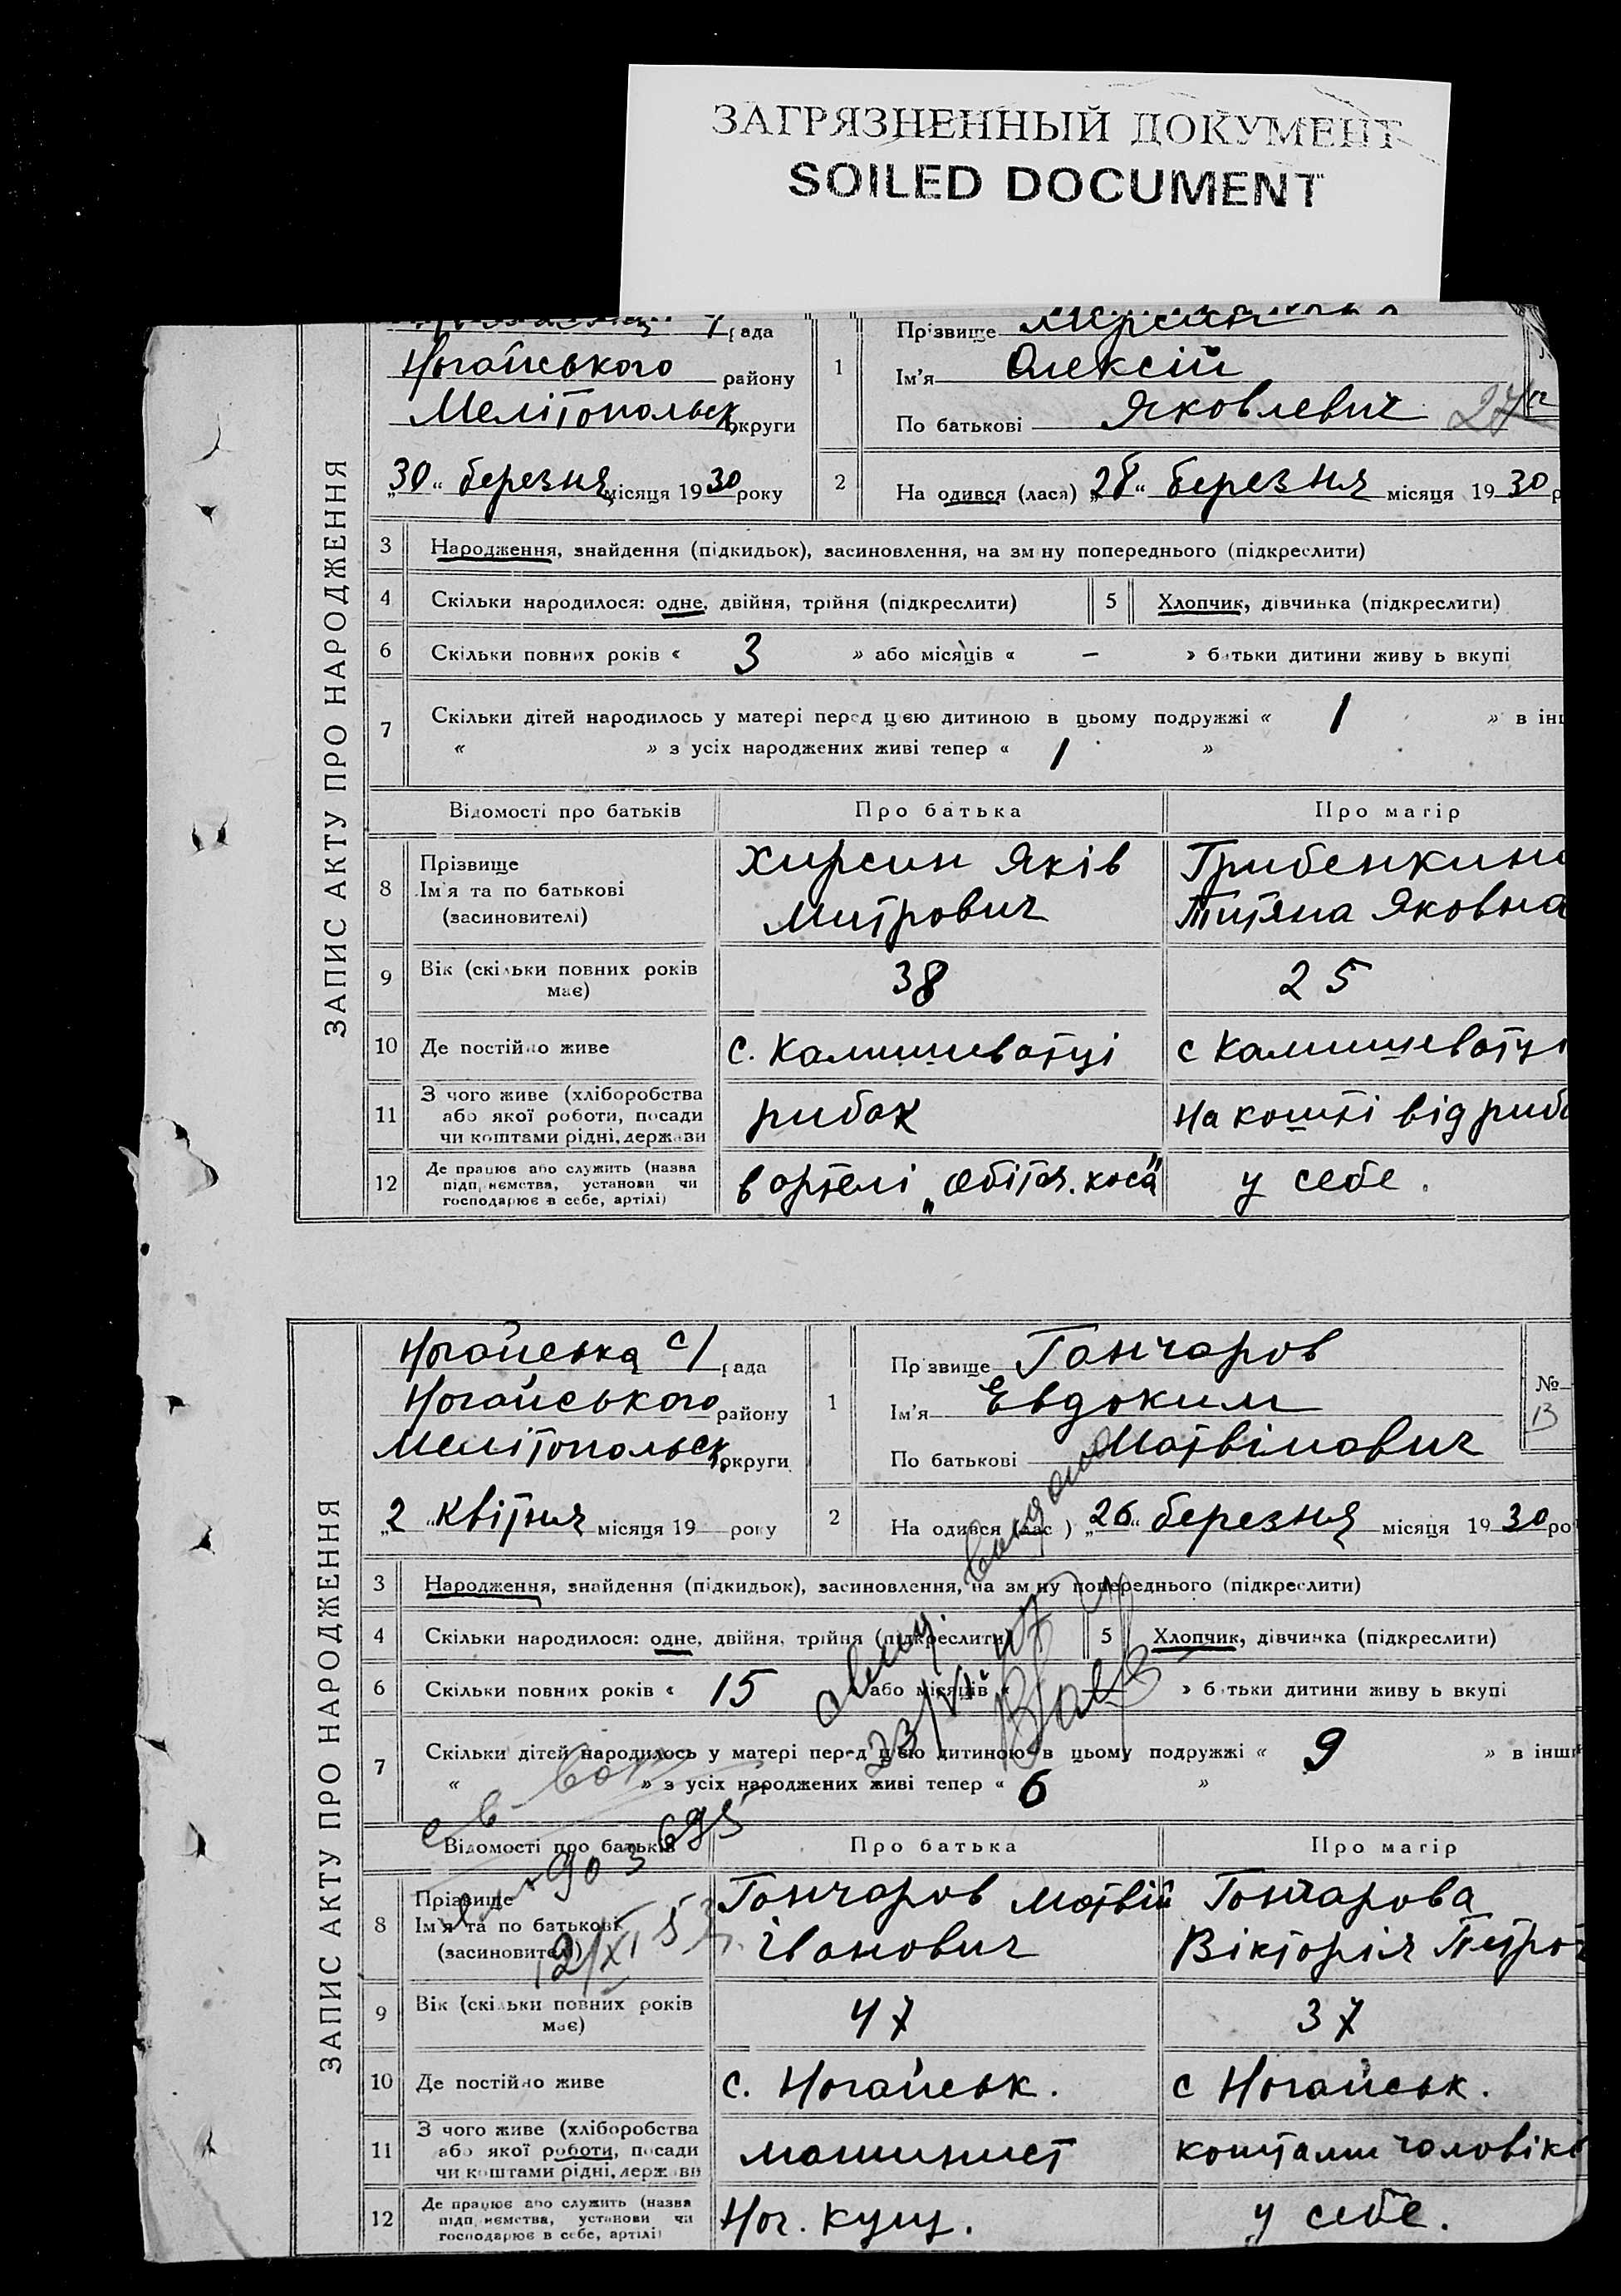 ЗАГРЯЗНЕННЫЙ ДОКУМЕНТ
SOILED DOCUMENT
ЗАПИС АКТУ ПРО НАРОДЖЕННЯ
рада
Ногайського району
Мелітопольськ округи
„30“ березня місяця 1930 року
1
Прізвище
Ім'я Олексій
По батькові Яковлевич
27
2
На одився (лася) „28“ березня місяця 1930 р
3 Народження, знайдення (підкидьок), засиновлення, на зм ну попереднього (підкреслити)
4 Скільки народилося: одне, двійня, трійня (підкреслити)
5 Хлопчик, дівчинка (підкреслити)
6 Скільки повних років « 3 » або місяців « — » б тьки дитини живу ь вкупі
7 Скільки дітей народилось у матері перед цією дитиною в цьому подружжі « 1 » в інш
« » з усіх народжених живі тепер « 1 »
Відомості про батьків Про батька Про матір
8 Прізвище
Ім'я та по батькові
(засиновителі)
Хирсин Яків
Митрович
Грибенкина
Титяна Яковна
9 Вік (скільки повних років
має)
38 25
10 Де постійно живе с. Камишеватці с Камишеватці
11 З чого живе (хліборобства
або якої роботи, посади
чи коштами рідні, держави
рибак на кошті від риб
12 Де працює або служить (назва
підп, немства, установи чи
господарює в себе, артілі)
в артелі „Обіточ. коса“ у себе.
ЗАПИС АКТУ ПРО НАРОДЖЕННЯ
Ногайська с/рада
Ногайського району
Мелітопольськ округи
„2“ квітня місяця 19 року
1
Пр звище Гончаров
Ім'я Евдоким
По батькові Матвійович
№
13
2
На одився (лас ) „26“ березня місяця 1930 ро
3 Народження, знайдення (підкидьок), засиновлення, на зм ну попереднього (підкреслити)
4 Скільки народилося: одне, двійня, трійня (підкреслити)
5 Хлопчик, дівчинка (підкреслити)
6 Скільки повних років « 15 або місяців « — » б тьки дитини живу ь вкупі
23/VI 47
7 Скільки дітей народилось у матері перед цією дитиною в цьому подружжі « 9 » в інши
« » з усіх народжених живі тепер « 6 »
Відомості про батьків Про батька Про матір
12/XI 53
8 Прізвище
Ім'я та по батькові
(засиновителі)
Гончаров Матвій
Іванович
Гончарова
Вікторія Петро
9 Вік (скільки повних років
має)
47 37
10 Де постійно живе с. Ногайськ. с Ногайськ.
11 З чого живе (хліборобства
або якої роботи, посади
чи коштами рідні, держ ви
машинист коштами чоловіка
12 Де працює або служить (назва
підп, немства, установи чи
господарює в себе, артілі)
Ног. кущ. у себе.